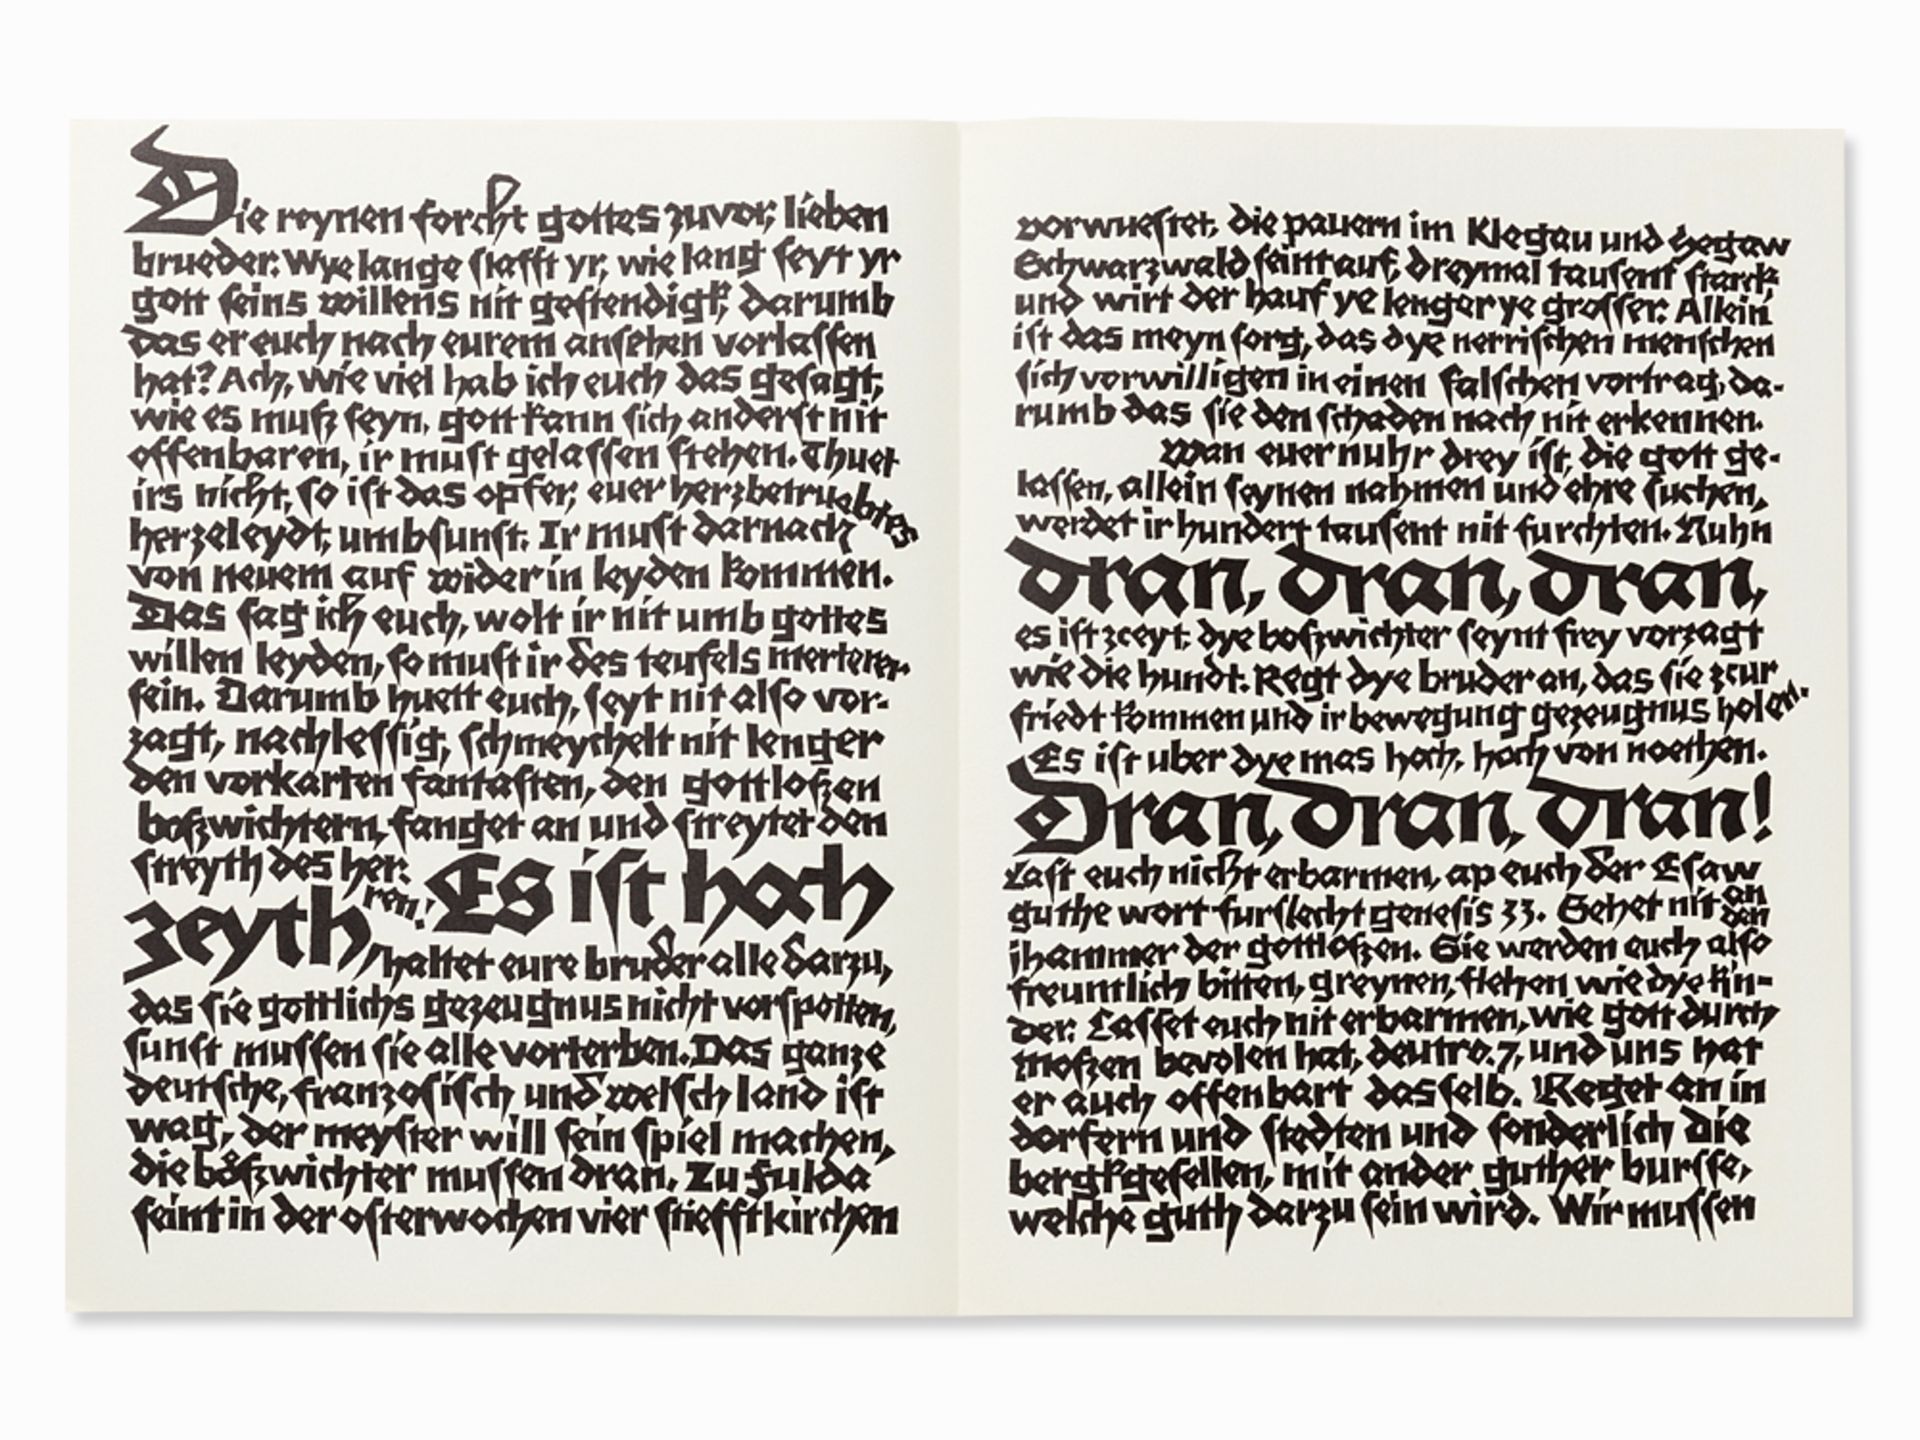 Die reynen forcht gottes zuvor, lieben
brueder. Wye lange slafft yr, wie lang seyt yr
gott seins willens nit gestendigk, darumb
das er euch nach eurem ansehen vorlassen
hat? Ach, wie viel hab ich euch das gesagt,
wie es musz seyn. gott kann sich anderst nit
offenbaren, ir must gelassen stehen. Thuet
irs nicht, so ist das opfer, euer herzbetruebtes
herzeleydt, umbsunst. Ir must darnach
von neuem auf wider in leyden kommen.
Das sag ich euch, wolt ir nit umb gottes
willen leyden, so must ir des teufels merterer
sein. Darumb huett euch, seyt nit also vor-
zagt, nachlessig, schmeychelt nit lenger
den vorkarten fantasten, den gottloszen
boszwichtern, fanget an und streytet den
streyth des her:
ren! Es ist hoch
zeyth, haltet eure bruder alle darzu,
das sie gottlichs gezeugnus nicht vorspotten,
sunst mussen sie alle vorterben. Das ganze
deutsche, franzosisch und welsch land ist
wag, der meyster will sein spiel machen,
die boszwichter mussen dran. Zu Fulda
seint in der osterwochen vier stiefftkirchen
vorwuestet, die pauern im Klegau und Hegaw
Schwarzwald seint auf, dreymal tausent starck
und wirt der hauf ye lenger ye grosser. Allein
ist das meyn sorg, das dye nerrischen menschen
sich vorwilligen in einen falschen vortrag, da-
rumb das sie den schaden nach nit erkennen.
Wan euer nuhr drey ist, die gott ge-
lassen, allein seynen nahmen und ehre suchen,
werdet ir hundert tausent nit furchten. Nuhn
dran, dran, dran,
es ist zceyt, dye boszwichter seynt frey vorzagt
wie die hundt. Regt dye bruder an, das sie zcur
friedt kommen und ir bewegung gezeugnus holen.
Es ist uber dye mas hoch, hoch von noethen.
Dran, dran, dran!
Last euch nicht erbarmen, ap euch der Esaw
guthe wort furslecht genesis 33. Sehet nit an den
jhammer der gottloszen. Sie werden euch also
freuntlich bitten, greynen, flehen wie dye kin-
der. Lasset euch nit erbarmen, wie gott durch
moszen bevolen hat, deutro. 7, und uns hat
er auch offenbart dasselb. Reget an in
dorfern und stedten und sonderlich die
bergkgesellen, mit ander guther bursse,
welche guth darzu sein wird. Wir mussen